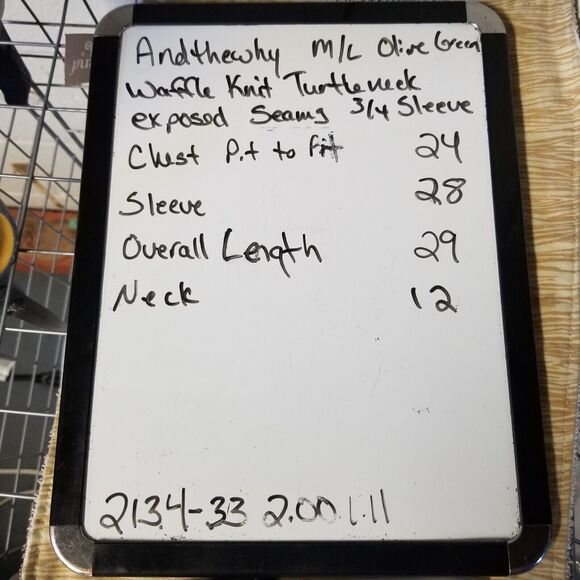 Andthewhy M/L Olive Green
Waffle Knit Turtleneck
exposed Seams 3/4 Sleeve
Chest Pit to Pit 24
Sleeve 28
Overall Length 29
Neck 12
2134-33 2.00 1.11